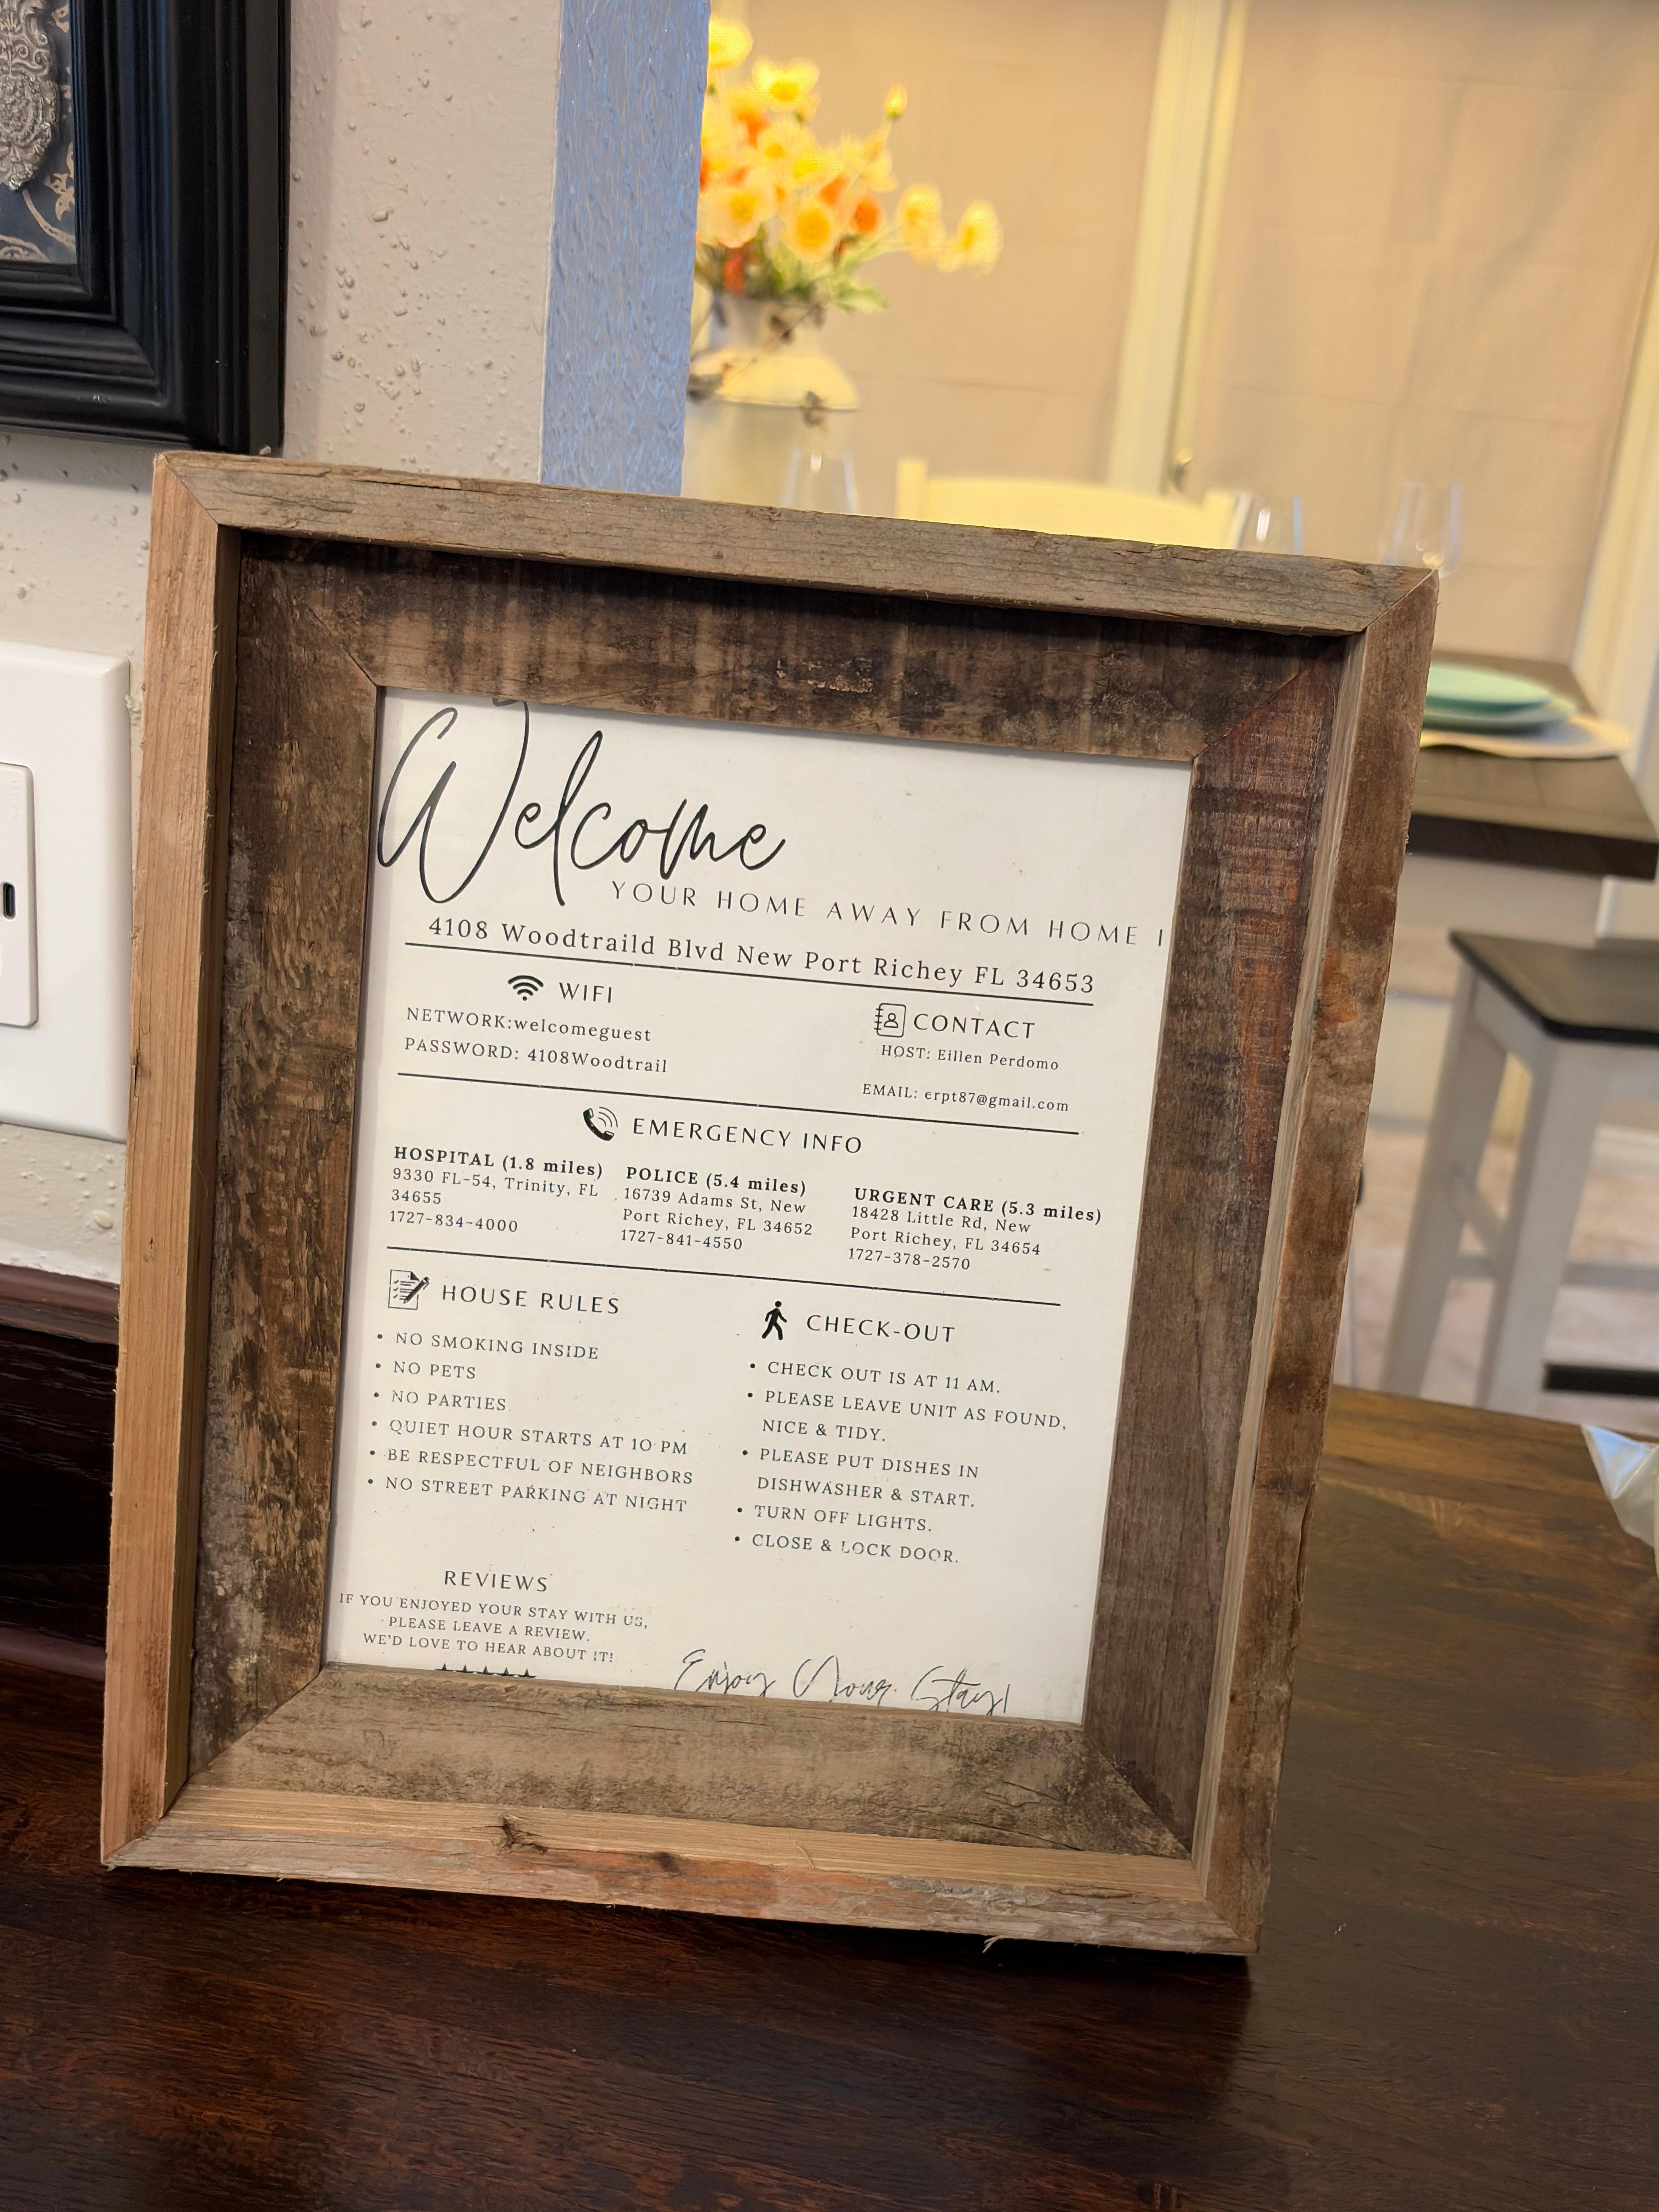 Welcome
YOUR HOME AWAY FROM HOME I
4108 Woodtraild Blvd New Port Richey FL 34653
WIFI
NETWORK:welcomeguest
PASSWORD: 4108Woodtrail
CONTACT
HOST: Eillen Perdomo
EMAIL: erpt87@gmail.com
EMERGENCY INFO
HOSPITAL (1.8 miles)
9330 FL-54, Trinity, FL
34655
1727-834-4000
POLICE (5.4 miles)
16739 Adams St, New
Port Richey, FL 34652
1727-841-4550
URGENT CARE (5.3 miles)
18428 Little Rd, New
Port Richey, FL 34654
1727-378-2570
HOUSE RULES
• NO SMOKING INSIDE
• NO PETS
• NO PARTIES
• QUIET HOUR STARTS AT 10 PM
• BE RESPECTFUL OF NEIGHBORS
• NO STREET PARKING AT NIGHT
CHECK-OUT
• CHECK OUT IS AT 11 AM.
• PLEASE LEAVE UNIT AS FOUND,
NICE & TIDY.
• PLEASE PUT DISHES IN
DISHWASHER & START.
• TURN OFF LIGHTS.
• CLOSE & LOCK DOOR.
REVIEWS
IF YOU ENJOYED YOUR STAY WITH US,
PLEASE LEAVE A REVIEW.
WE'D LOVE TO HEAR ABOUT IT!
Enjoy Your Stay!